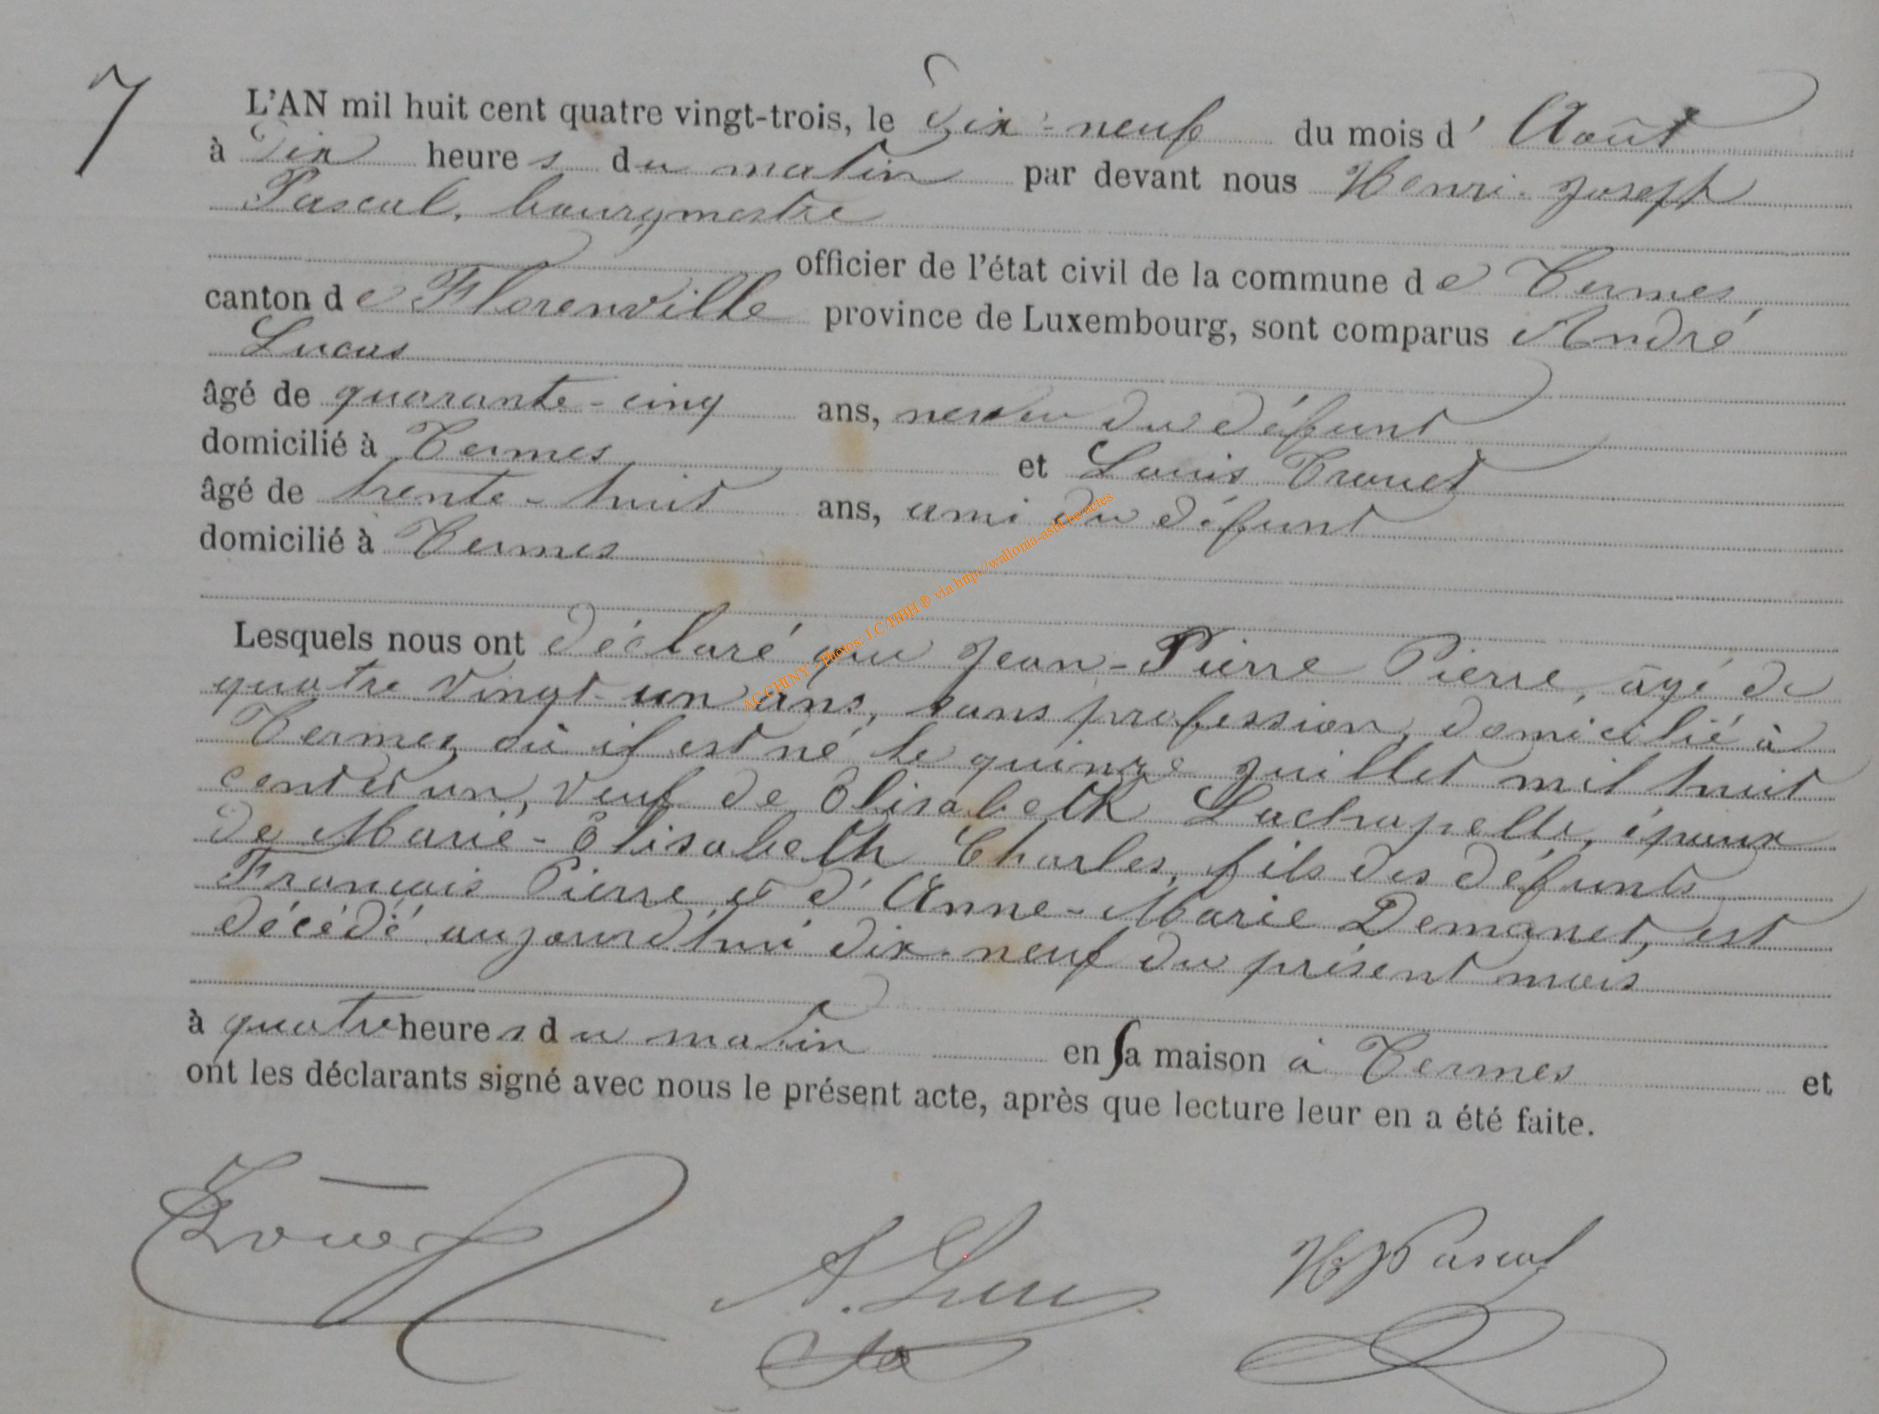 7
L'AN mil huit cent quatre vingt-trois, le Dix-neuf du mois d' Août
à Dix heures du matin par devant nous Henri-Joseph
Pascal, bourgmestre
officier de l'état civil de la commune de Termes
canton de Florenville province de Luxembourg, sont comparus André
Lucas
âgé de quarante-cinq ans, neveu du défunt
domicilié à Termes et Louis Trouet
âgé de trente-huit ans, ami du défunt
domicilié à Termes
Lesquels nous ont déclaré que Jean-Pierre Pierre, âgé de
quatre vingt-un ans, sans profession, domicilié à
Termes où il est né le quinze Juillet mil huit
cent et un, veuf de Elisabeth Lachapelle, époux
de Marie-Elisabeth Charles, fils des défunts
François Pierre et d'Anne-Marie Demanet, est
décédé aujourd'hui dix-neuf du présent mois
à quatre heures du matin en sa maison à Termes et
ont les déclarants signé avec nous le présent acte, après que lecture leur en a été faite.
Trouet A. Lucas HJ Pascal
AC CHINY - Photos: J.C HBH ® via http://wallonia-asbl.be/actes